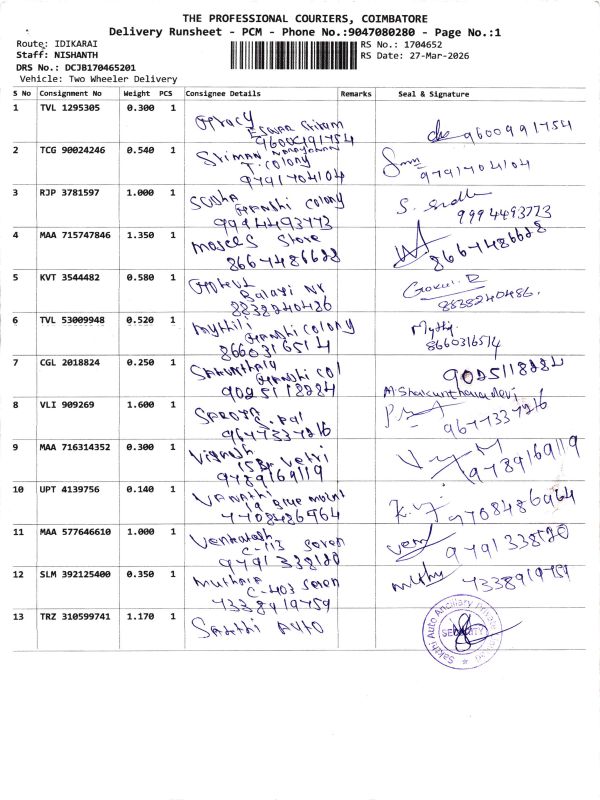 THE PROFESSIONAL COURIERS, COIMBATORE
Delivery Runsheet - PCM - Phone No.:9047080280 - Page No.:1
Route: IDIKARAI
Staff: NISHANTH
DRS No.: DCJB170465201
Vehicle: Two Wheeler Delivery
RS No.: 1704652
RS Date: 27-Mar-2026
S No Consignment No Weight PCS Consignee Details Remarks Seal & Signature
1 TVL 1295305 0.300 1
9600991754 9600991754
2 TCG 90024246 0.540 1 Sriman
T. Colony
9791704104 9791704104
3 RJP 3781597 1.000 1 Colony
9994493773 9994493773
4 MAA 715747846 1.350 1 Store
8667486628 8667486628
5 KVT 3544482 0.580 1 Balaji NR Gokul. D
8838240486 8838240486.
6 TVL 53009948 0.520 1 Mythili Colony
8660316514 8660316514
7 CGL 2018824 0.250 1
9025118284 9025118284
M Shakunthala devi
8 VLI 909269 1.600 1 Saroja
9677337216 9677337216
9 MAA 716314352 0.300 1 Vignesh
9789169119 9789169119
10 UPT 4139756 0.140 1 Vanathi
19 Blue mount
7708486964 9708486964
11 MAA 577646610 1.000 1 Venkatesh
C-113 Seven
9791338120 9791338120
12 SLM 392125400 0.350 1 C-403 Seven
7338919759 7338919759
13 TRZ 310599741 1.170 1 Sakthi Auto
Sakthi Auto Ancillary Private
SECURITY